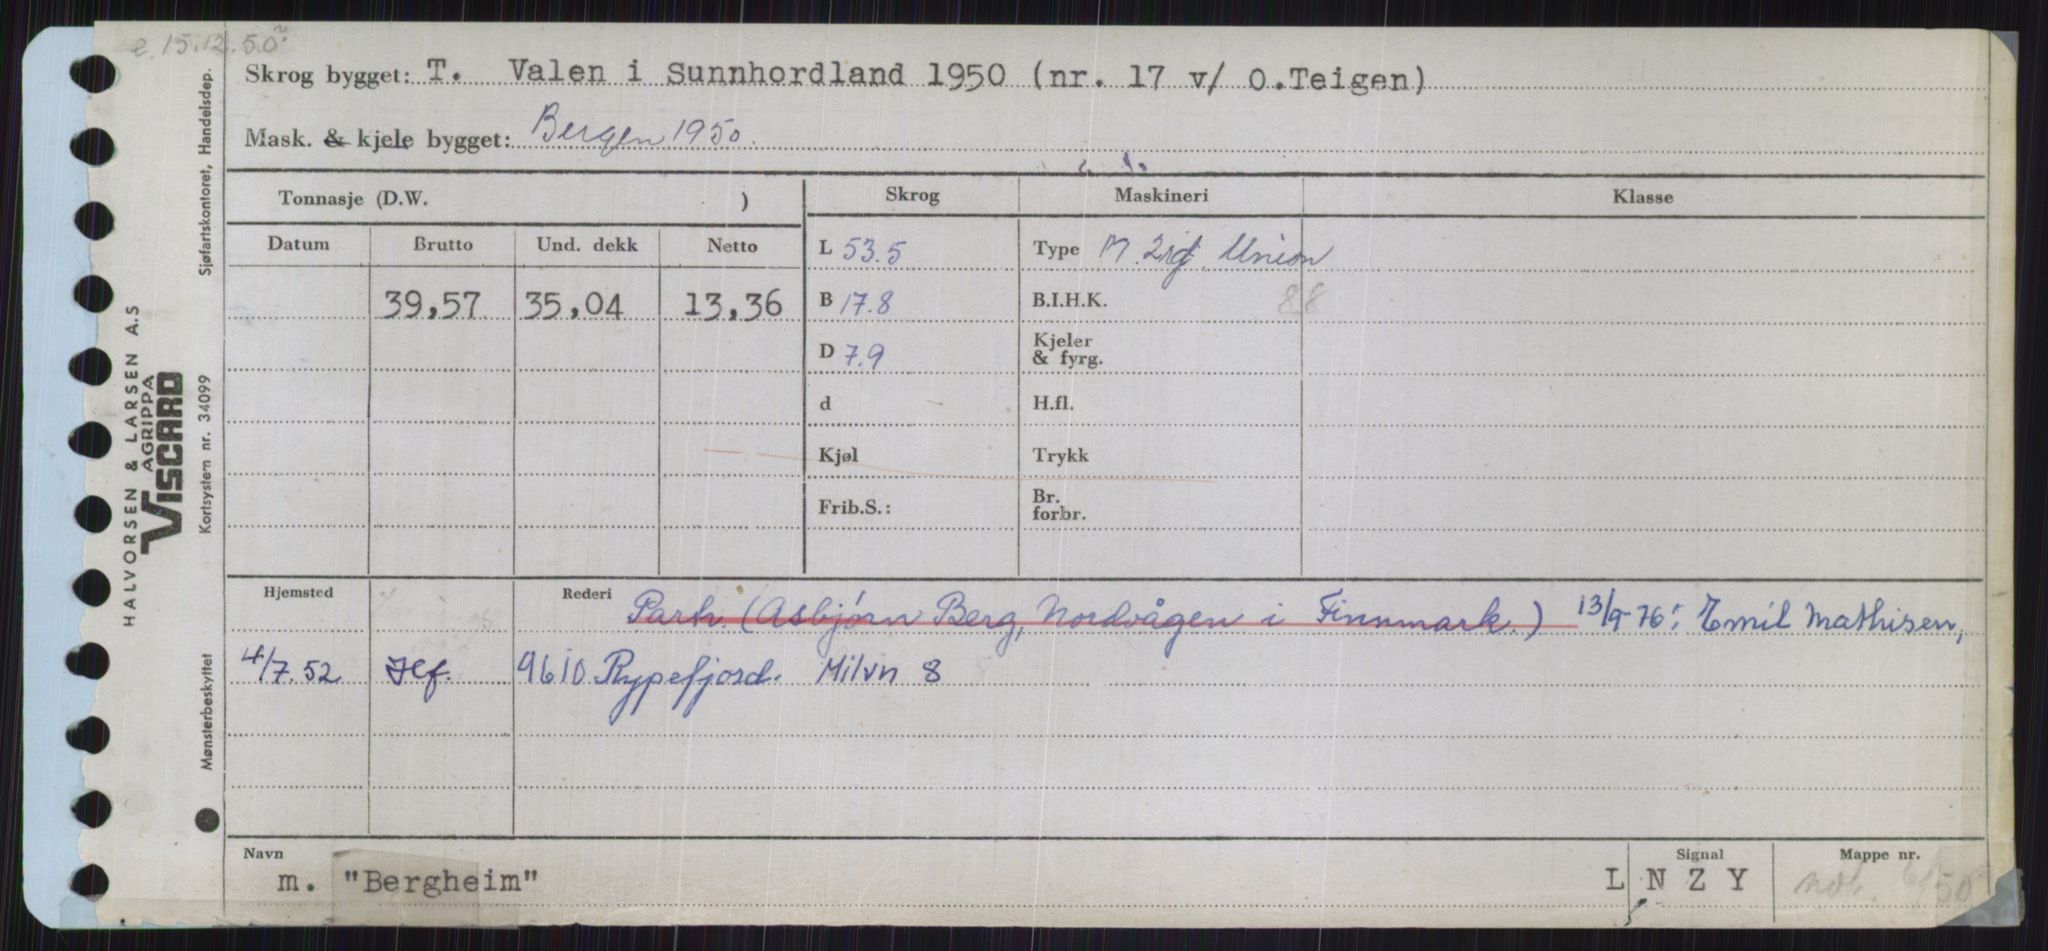 e. 15.12.50
Skrog bygget: T. Valen i Sunnhordland 1950 (nr. 17 v/ O.Teigen)
Mask. & kjele bygget: Bergen 1950.
Tonnasje (D.W. )
Skrog
Maskineri
Klasse
Datum Brutto Und. dekk Netto
39,57 35,04 13,36
L 53.5
B 17.8
D 7.9
d
Kjøl
Frib.S.:
Type M. 2 Union
B.I.H.K. 88
Kjeler
& fyrg.
H.fl.
Trykk
Br.
forbr.
Hjemsted
Rederi
Park. (Asbjørn Berg, Nordvågen i Finnmark.) 13/9-76: Emil Mathisen,
4/7.52 Hf. 9610 Rypefjord. Milvn 8
Navn
m. "Bergheim"
Signal
L N Z Y
Mappe nr.
6/50
HALVORSEN & LARSEN A.S
AGRIPPA
VISCARD
Sjøfartskontoret, Handelsdep.
Kortsystem nr. 34099
Mønsterbeskyttet